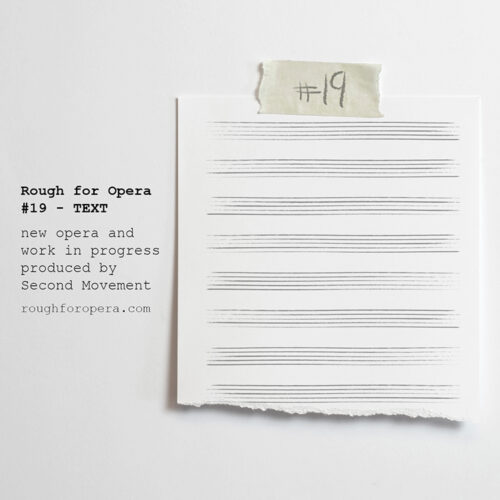 #19
Rough for Opera
#19 - TEXT
new opera and
work in progress
produced by
Second Movement
roughforopera.com